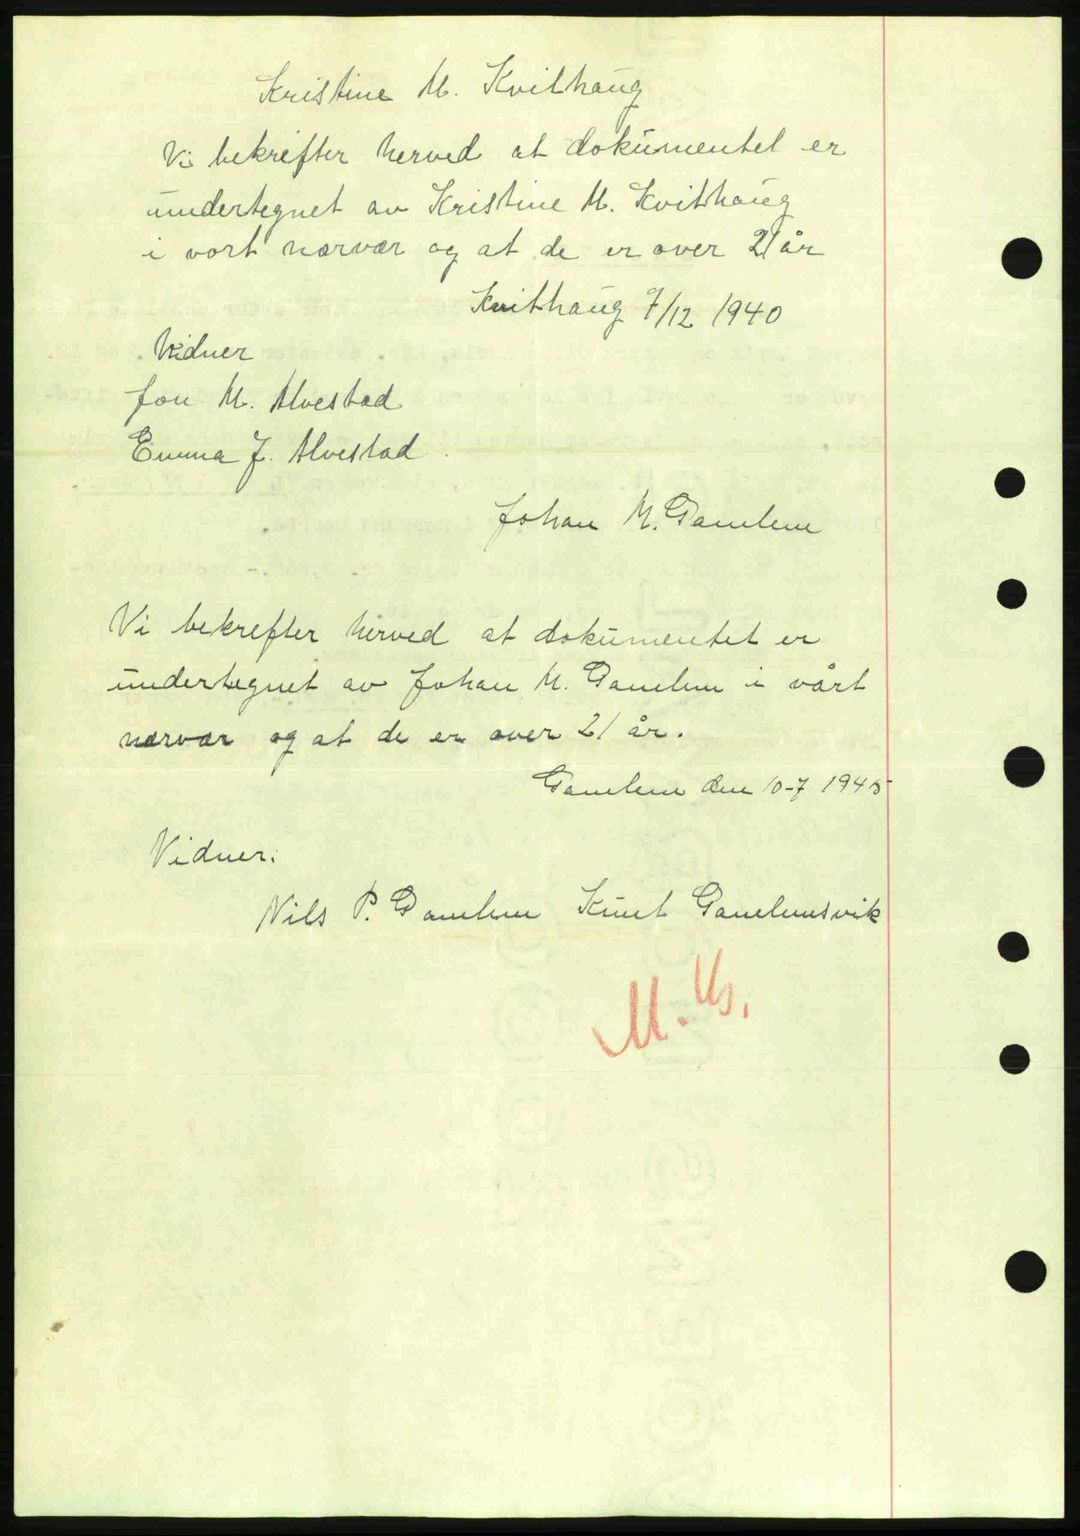 Kristine M. Kvithaug
Vi bekrefter herved at dokumentet er
undertegnet av Kristine M. Kvithaug
i vort nærvær og at de er over 21 år
Kvithaug 7/12 1940
Vidner
Jon M. Alvestad
Emma J. Alvestad
Johan M. Gamlem
Vi bekrefter herved at dokumentet er
undertegnet av Johan M. Gamlem i vårt
nærvær og at de er over 21 år.
Gamlem den 10-7 1945
Vidner:
Nils P. Gamlem Knut Gamlemsvik